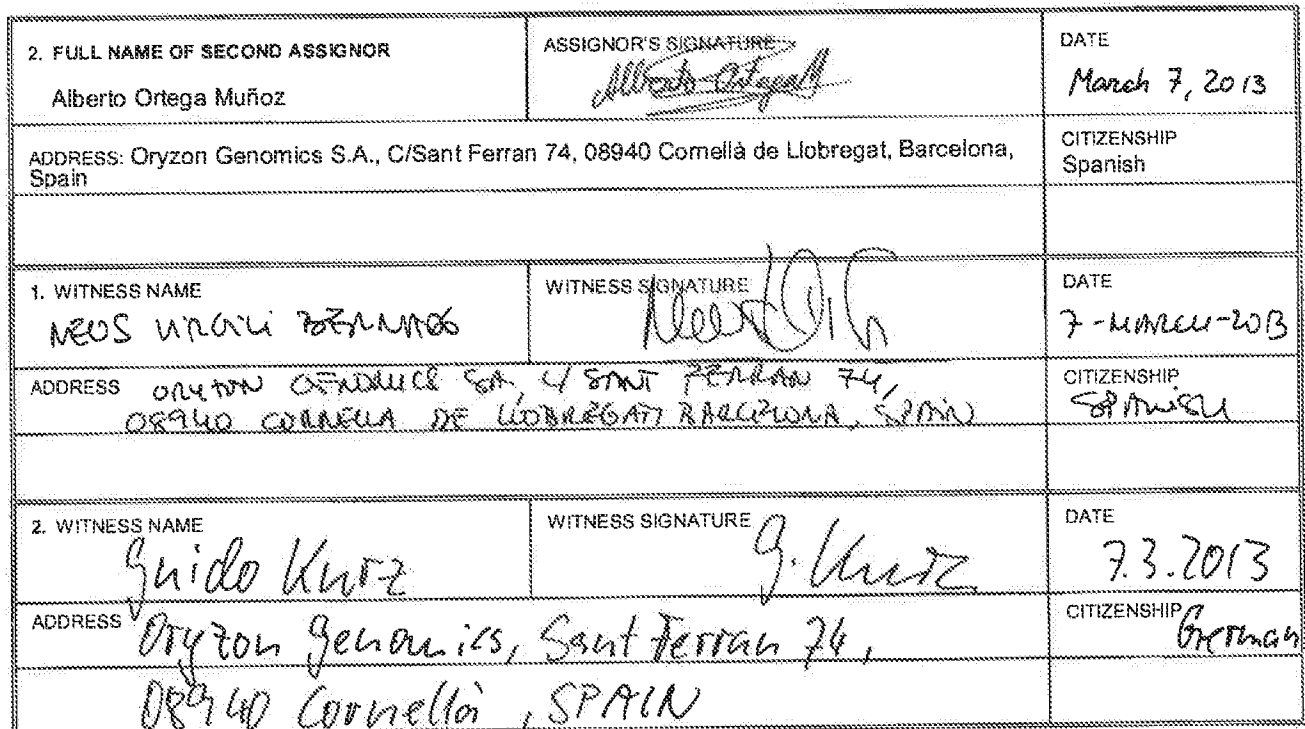 2. FULL NAME OF SECOND ASSIGNOR
Alberto Ortega Muñoz
ASSIGNOR'S SIGNATURE
Alberto Ortega M
DATE
March 7, 2013
ADDRESS: Oryzon Genomics S.A., C/Sant Ferran 74, 08940 Cornellà de Llobregat, Barcelona,
Spain
CITIZENSHIP
Spanish
1. WITNESS NAME
NEUS VIRGILI BERNADO
WITNESS SIGNATURE
DATE
7-MARCH-2013
ADDRESS ORYZON GENOMICS SA, C/ SANT FERRAN 74,
08940 CORNELLA DE LLOBREGAT, BARCELONA, SPAIN
CITIZENSHIP
SPANISH
2. WITNESS NAME
Guido Kurz
WITNESS SIGNATURE
G. Kurz
DATE
7.3.2013
ADDRESS Oryzon Genomics, Sant Ferran 74,
08940 Cornellà, SPAIN
CITIZENSHIP German